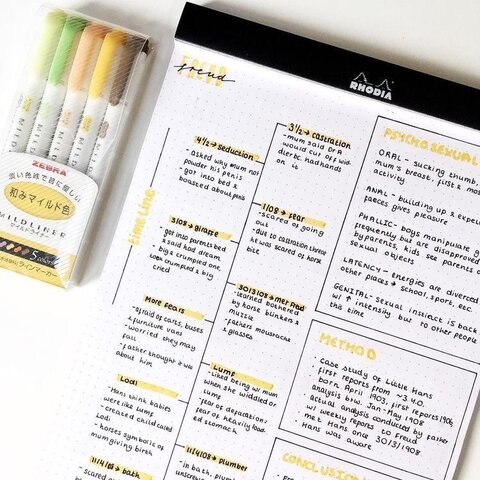 ZEBRA
濃い色味で目に優しい
和みマイルド色
MILDLINER
マイルドライナー
ラインマーカー
RHODIA
FREUD
freud
timeline
4½ → seduction
- Asked why mum not
powder his penis
- got into bed &
boasted about penis
3½ → castration
- mum said Dr A
would cut off wid-
dler bc had hands
on it
3/08 → giraffe
- got into parents bed
& said had dream
- big & crumpled one.
took crumpled & big
cried
1/08 → fear
- scared of going
out
- due to castration threat
+ he was scared of horse
bite
More fears
- afraid of carts, buses
& furniture vans
- worried they may
fall
- father thought it was
about him
30/3/08 → met Freud
- learned bothered
by horse blinkers &
muzzle
- fathers moustache
glasses
Lodi
- Hans think babies
were like lumf
- created child called
Lodi
- horses symbolic of
mum giving birth
Lumf
- liked being w/ mum
when she widdled or
lumf
- fear of defacation:
fear of heavily load
ed stomach
11/4/08 → bath
11/4/08 → plumber
- in bath, plumber
unscrewed
PSYCHOSEXUAL
ORAL - sucking thumb,
mum's breast, first & most
activity
ANAL - building up & expelling
faeces gives pleasure
PHALLIC - boys manipulate
frequently but are disapproved
by parents. kids see parents
sexual objects
LATENCY - energies are diverced
other places → school, sports, etc.
GENITAL - sexual instinct is back
w/ ↑ intensity but to other people
this time
METHOD
- case study of Little Hans
- first reports from ~3.40.
- born April 1903, first reports 1906,
analysis btw. Jan-May 1908
- actual analysis conducted by father
w/ weekly reports to Freud
- met Hans once 30/3/1908
- Hans was aware
CONCLUSION